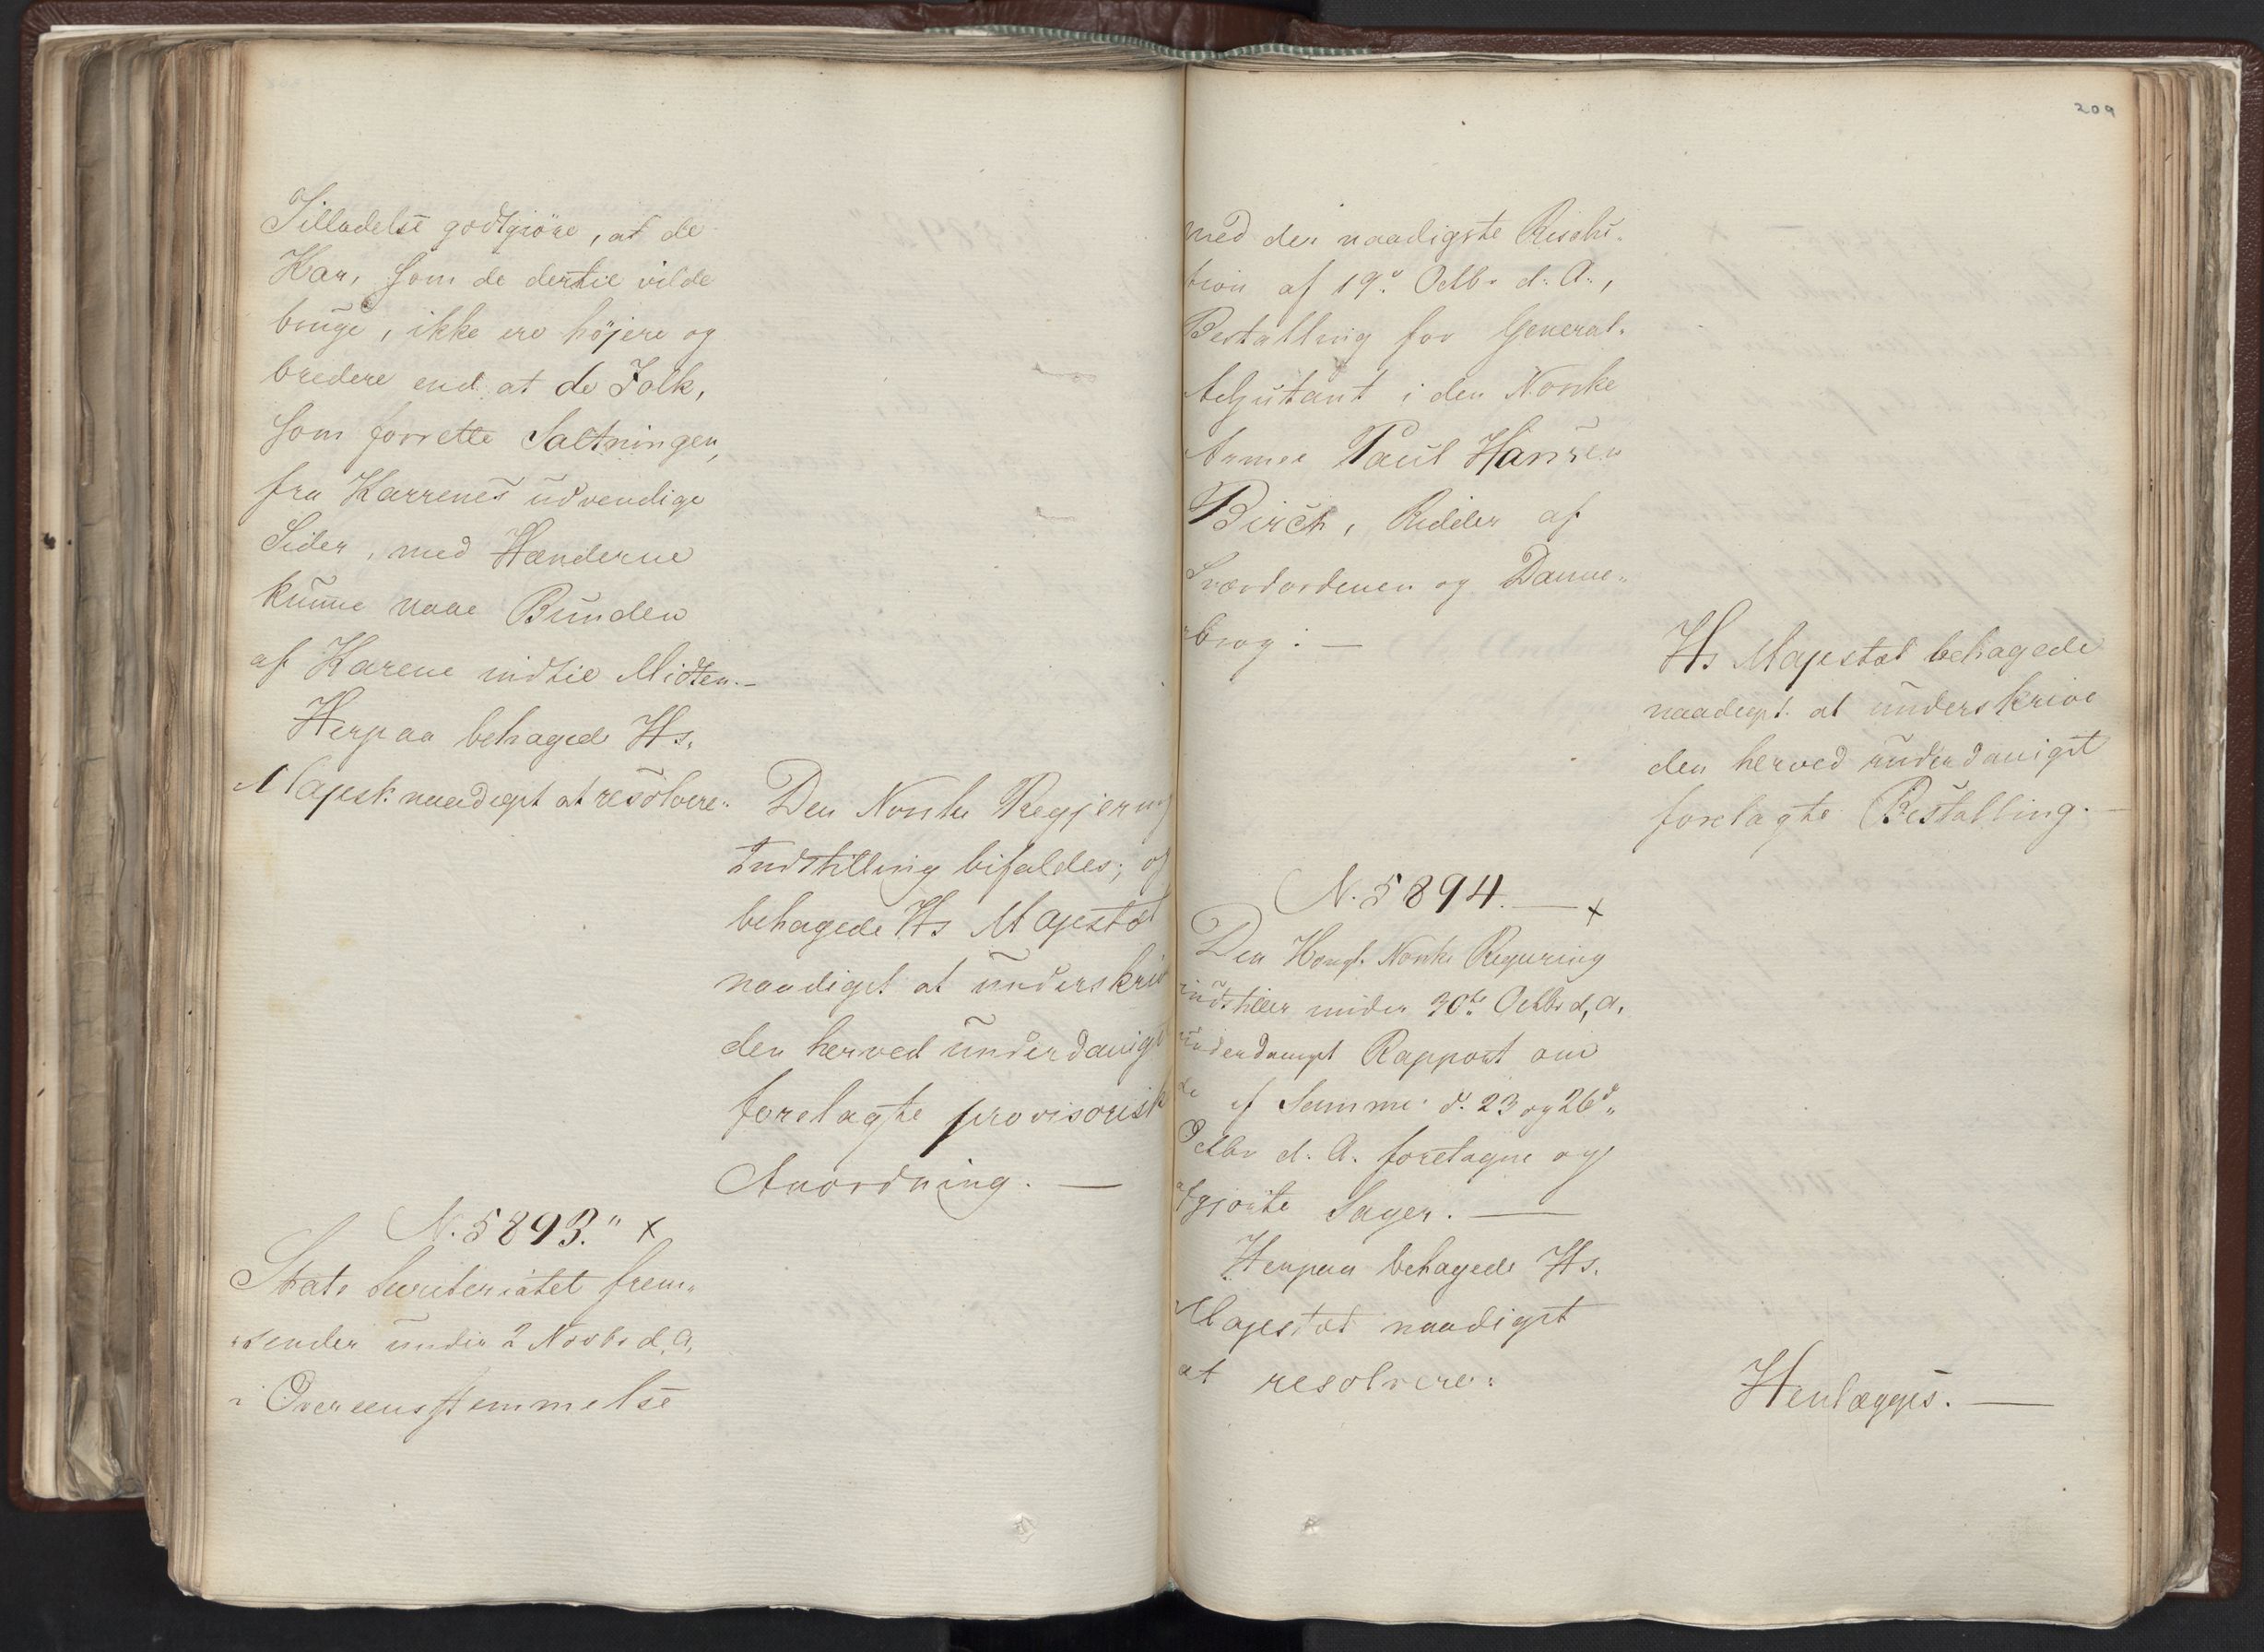 Tilladelse godtgjöre, at de
Kar, som de dertil vilde
bruge, ikke ere höjere og
bredere end at de Folk,
som forrette Saltningen,
fra Karrenes udvendige
Sider, med Hænderne
kunne naae Bunden
af Karene indtil Midten.—
Herpaa behagede Hs.
Majest. naadigst at resolvere:
Den Norske Regjerings
Indstilling bifaldes; og
behagede Hs Majestæt
naadigst at underskrive
den herved underdanigst
forelagte provisorisk
Anordning. —
N. 5893." x
Stats Secreteriatet frem-
sender under 2 Novbr d. A.
i Overeensstemmelse
209
med den naadigste Resolu-
tion af 19de Octbr d. A.,
Bestalling for General-
Adjutant i den Norske
Armee Paul Hansen
Birch, Ridder af
Sværdordenen og Danne-
brog: —
Hs Majestæt behagede
naadigst at underskrive
den herved underdanigst
forelagte Bestalling. —
N. 5894. — x
Den Kongl. Norske Regjering
indstiller under 30te Octbr d. A.
underdanigst Rapport om
de af Samme d. 23 og 26de
Octbr d. A. foretagne og
afgjorte Sager. —
Herpaa behagede Hs.
Majestæt naadigst
at resolvere:
Henlægges. —